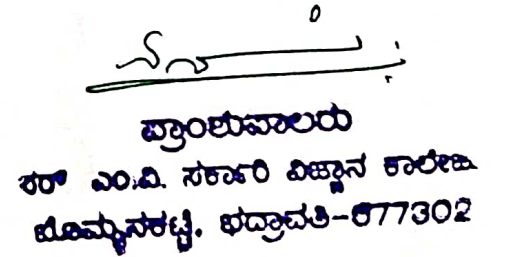 ಪ್ರಾಂಶುಪಾಲರು
ಸರ್ ಎಂ.ವಿ. ಸರ್ಕಾರಿ ವಿಜ್ಞಾನ ಕಾಲೇಜು
ಬೊಮ್ಮನಕಟ್ಟೆ, ಭದ್ರಾವತಿ-577302